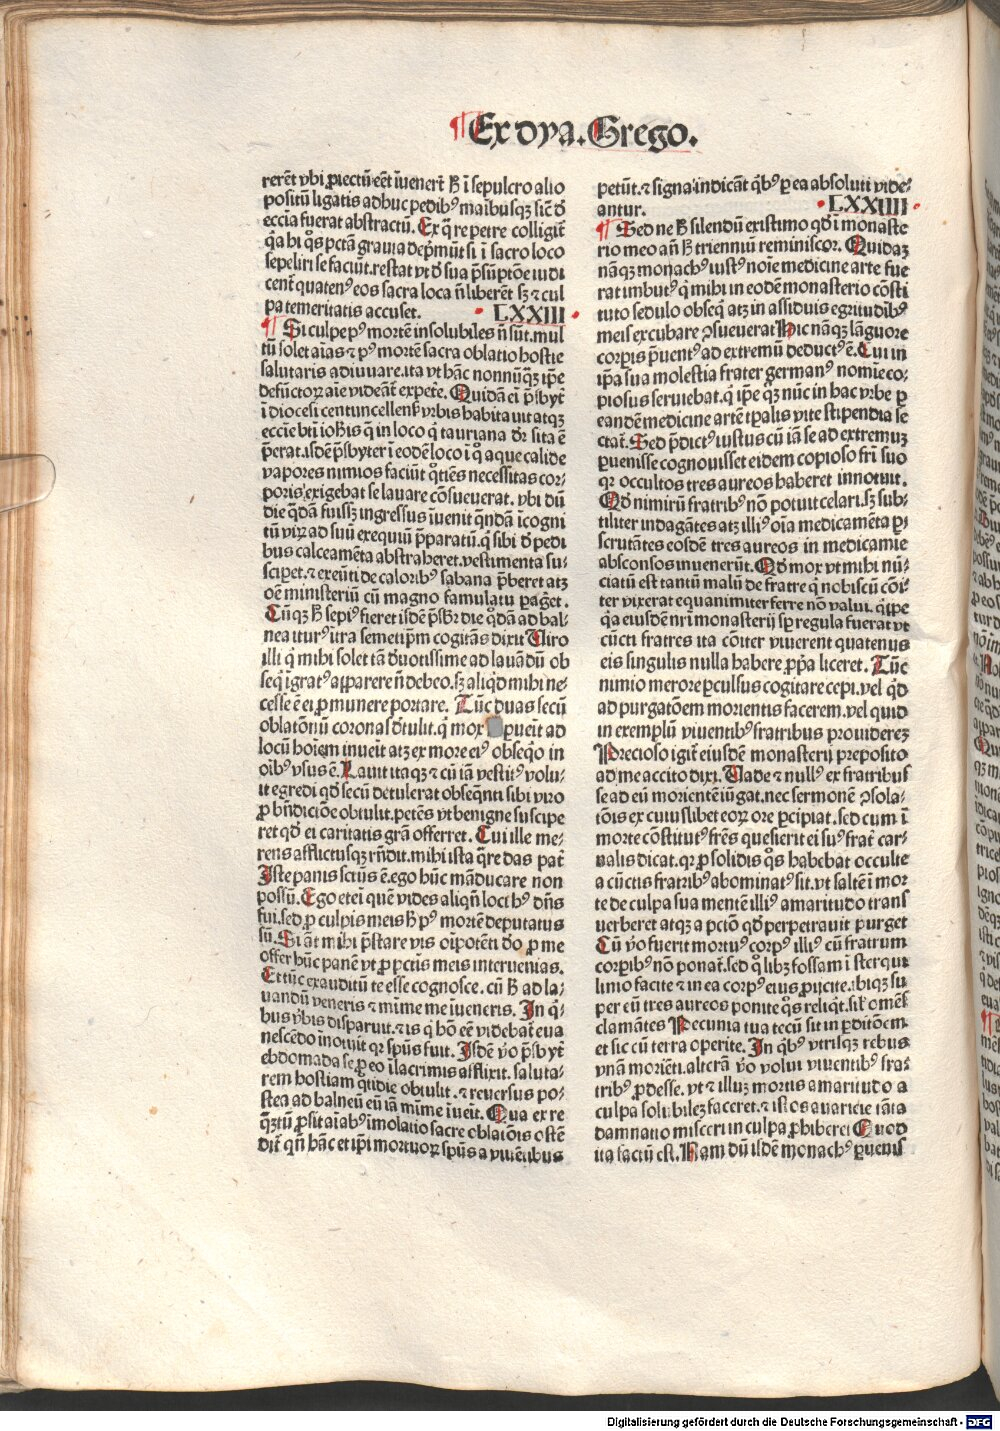 Ex dya. Grego.
rerēt vbi ꝓiectū eēt īuenert̄ h̄ ī sepulcro alio
positū ligatis adhuc pedibꝰ maībusqꝫ sic̄ d̄
eccīa fuerat abstractū. Ex q̄ re petre colligit̄
q̄a hi q̊s pctā grauia dep̄mūt si ī sacro loco
sepeliri se faciūt. restat vt d̄ sua p̄sūptōe iudi
cent̄ quatenꝰ eos sacra loca n̄ liberēt sꝫ ⁊ cul
pa temeritatis accuset. LXXIII
¶ Si culpe pꝰ mortē insolubiles n̄ sūt. mul
tū solet aīas ⁊ pꝰ mortē sacra oblatio hostie
salutaris adiuuare. ita vt hāc nonnūqꝫ ip̄e
defūctoꝝ aīe videāt̄ expete̅. Quidā eī p̄sbyt̄
ī diocesi centuncellens̄ vrbis habitauit atqꝫ
eccīe bt̄i ioh̄is q̄ in loco q̇ tauriana dr̄ sita ē
p̄erat. isdē p̄sbyter ī eodē loco ī q̊ aque calide
vapores nimios faciūt q̊tiēs necessitas cor-
poris exigebat se lauare cōsueuerat. vbi dū
die q̄dā fuissꝫ ingressus īuenit q̄ndā icogni
tū viꝝ ad suū exequiū p̄paratū. q̇ sibi d̄ pedi
bus calceamēta abstraheret. vestimenta su-
scip̄et. ⁊ exeūti de caloribꝰ sabana p̄beret atqꝫ
oē ministeriū cū magno famulatu ꝑaḡet.
Cūqꝫ h̄ sepiꝰ fieret isdē p̄sb̄r die q̊dā ad bal-
nea iturꝰ ītra semetip̄m cogitās dixit Uiro
illi q̇ mihi solet tā d̄uotissime ad lauādū ob
seq̇ igratꝰ aꝑparere n̄ debeo. sꝫ aliq̇d mihi ne-
cesse ē ei ꝓ munere portare. Tūc duas secū
oblatōnū coronas d̄tulit. q̇ mox ꝑueīt ad
locū hoīem īnueīt atqꝫ ex more eiꝰ obseq̇o in
oībꝰ vsus ē. Lauit itaqꝫ ⁊ cū iā vestitꝰ volu-
it egredi q̇d secū detulerat obseq̄nti sibi viro
ꝓ bn̄diciōe obtulit. petēs vt benigne suscipe
ret q̇d ei caritatis gr̄a offerret. Cui ille me-
rens afflictusqꝫ rn̄dit. mihi ista q̄re das pat̄
Iste panis sctūs ē. ego hūc māducare non
possū. Ego etei quē vides aliqn̄ loci hꝰ dn̄s
fui. sed ꝓ culpis meis h̄ pꝰ mortē deputatus
sū. Si āt mihi p̄stare vis oīpotēti d̄o ꝓ me
offer hūc panē vt ꝓ pctīs meis interuenias.
Et tūc exauditū te esse cognosce. cū h̄ ad la-
uandū veneris ⁊ mīme me īueneris. In q̇-
bus v̄bis disparuit. ⁊ is q̇ hō eē videbat̄ eua
nescēdo īnotuit qꝛ sp̄us fuit. Isdē v̄o p̄sbyt̄
ebdomada se ꝓ eo ī lacrimis afflixit. saluta-
rem hostiam q̇tidie obtulit. ⁊ reuersus po-
stea ad balneū eū iā mīme īueīt. Qua ex re
q̄ꝫtū ꝓsit aīabꝰ īmolatio sacre oblatōis ostē
dit̄ qn̄ hāc et ip̄i mortuoꝝ sp̄us a viuētibus
petūt. ⁊ signa indicāt q̇bꝰ ꝑ ea absoluti vide-
antur. LXXIIII
¶ Sed ne h̄ silendū existimo q̇d ī monaste
rio meo an̄ h̄ trienniū reminiscor. Quidaꝫ
nāqꝫ monachꝰ iustꝰ noīe medicine arte fue
rat imbutꝰ q̇ mihi in eodē monasterio cōsti
tuto sedulo obseq̇ atqꝫ in assiduis egritudībꝰ
meis excubare ꝯsueuerat Hic nāqꝫ lāguore
corꝑis p̄uentꝰ ad extremū deductꝰ ē. Cui in
ip̄a sua molestia frater germanꝰ nomīe co-
piosus seruiebat. q̇ ip̄e qꝫ nūc in hac vrbe ꝑ
eandē medicine artē tꝑalis vite stipendia se
ctat̄. Sed p̄dictꝰ iustus cū iā se ad extremuꝫ
ꝑuenisse cognouisset eidem copioso fr̄i suo
qꝛ occultos tres aureos haberet innotuit.
Qd̄ nimirū fratribꝰ nō potuit celari. sꝫ sub-
tiliter indagātes atqꝫ illiꝰ oīa medicamēta ꝑ-
scrutātes eosdē tres aureos in medicamīe
absconsos inuenerūt. Qd̄ mox vt mihi nū-
ciatū est tantū malū de fratre q̇ nobiscū cōi-
ter vixerat equanimiter ferre non valui. q̇ppe
q̄a eiusdē nr̄i monasterij sꝑ regula fuerat vt
cūcti fratres ita cōiter viuerent quatenus
eis singulis nulla habere ꝓpa liceret. Tūc
nimio merore ꝑculsus cogitare cepi. vel q̇d
ad purgatōem morientis facerem. vel quid
in exemplū viuentibꝰ fratribus prouiderez
Precioso igit̄ eiusdē monasterij preposito
ad me accito dixi. Uade ⁊ nullꝰ ex fratribus
se ad eū morientē iūgat. nec sermonē ꝯsola-
tōis ex cuiuslibet eoꝝ ore ꝑcipiat. sed cum ī
morte cōstitutꝰ fr̄es quesierit ei suꝰ frat̄ car-
nalis dicat. qꝛ ꝓ solidis q̊s habebat occulte
a cūctis fratribꝰ abominatꝰ sit. vt saltē ī mor
te de culpa sua mentē illiꝰ amaritudo trans
uerberet atqꝫ a pctō q̇d perpetrauit purget
Cū v̄o fuerit mortuꝰ corpꝰ illiꝰ cū fratrum
corꝑibꝰ nō ponat̄. sed q̊libꝫ fossam ī sterqui
linio facite ⁊ in ea corpꝰ eius ꝓijcite. ibiqꝫ su
per eū tres aureos ponite q̊s reliq̇t. sil̄ om̄es
clamātes Pecunia tua tecū sit in ꝑditōem
et sic cū terra operite. In q̇bꝰ vtrisqꝫ rebus
vnā moriēti. alterā v̄o volui viuentibꝰ fra-
tribꝰ ꝓdesse. vt ⁊ illuꝫ mortis amaritudo a
culpa solubileꝫ faceret. ⁊ istos auaricie tāta
damnatio misceri in culpa ꝓhiberet Quod
ita factū est. Nam dū isdē monachꝰ ꝑuenis
Digitalisierung gefördert durch die Deutsche Forschungsgemeinschaft - DFG